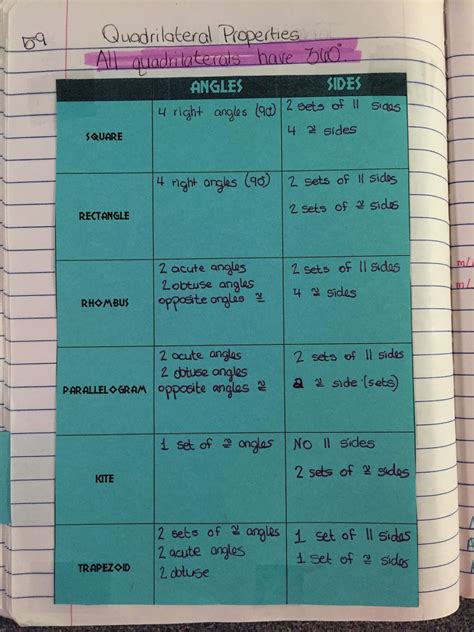 59
Quadrilateral Properties
All quadrilaterals have 360°.
ANGLES SIDES
SQUARE
4 right angles (90)
2 sets of || sides
4 ≅ sides
RECTANGLE
4 right angles (90)
2 sets of || sides
2 sets of ≅ sides
RHOMBUS
2 acute angles
2 obtuse angles
opposite angles ≅
2 sets of || sides
4 ≅ sides
PARALLELOGRAM
2 acute angles
2 obtuse angles
opposite angles ≅
2 sets of || sides
2 ≅ side (sets)
KITE
1 set of ≅ angles
NO || sides
2 sets of ≅ sides
TRAPEZOID
2 sets of ≅ angles
2 acute angles
2 obtuse
1 set of || sides
1 set of ≅ sides